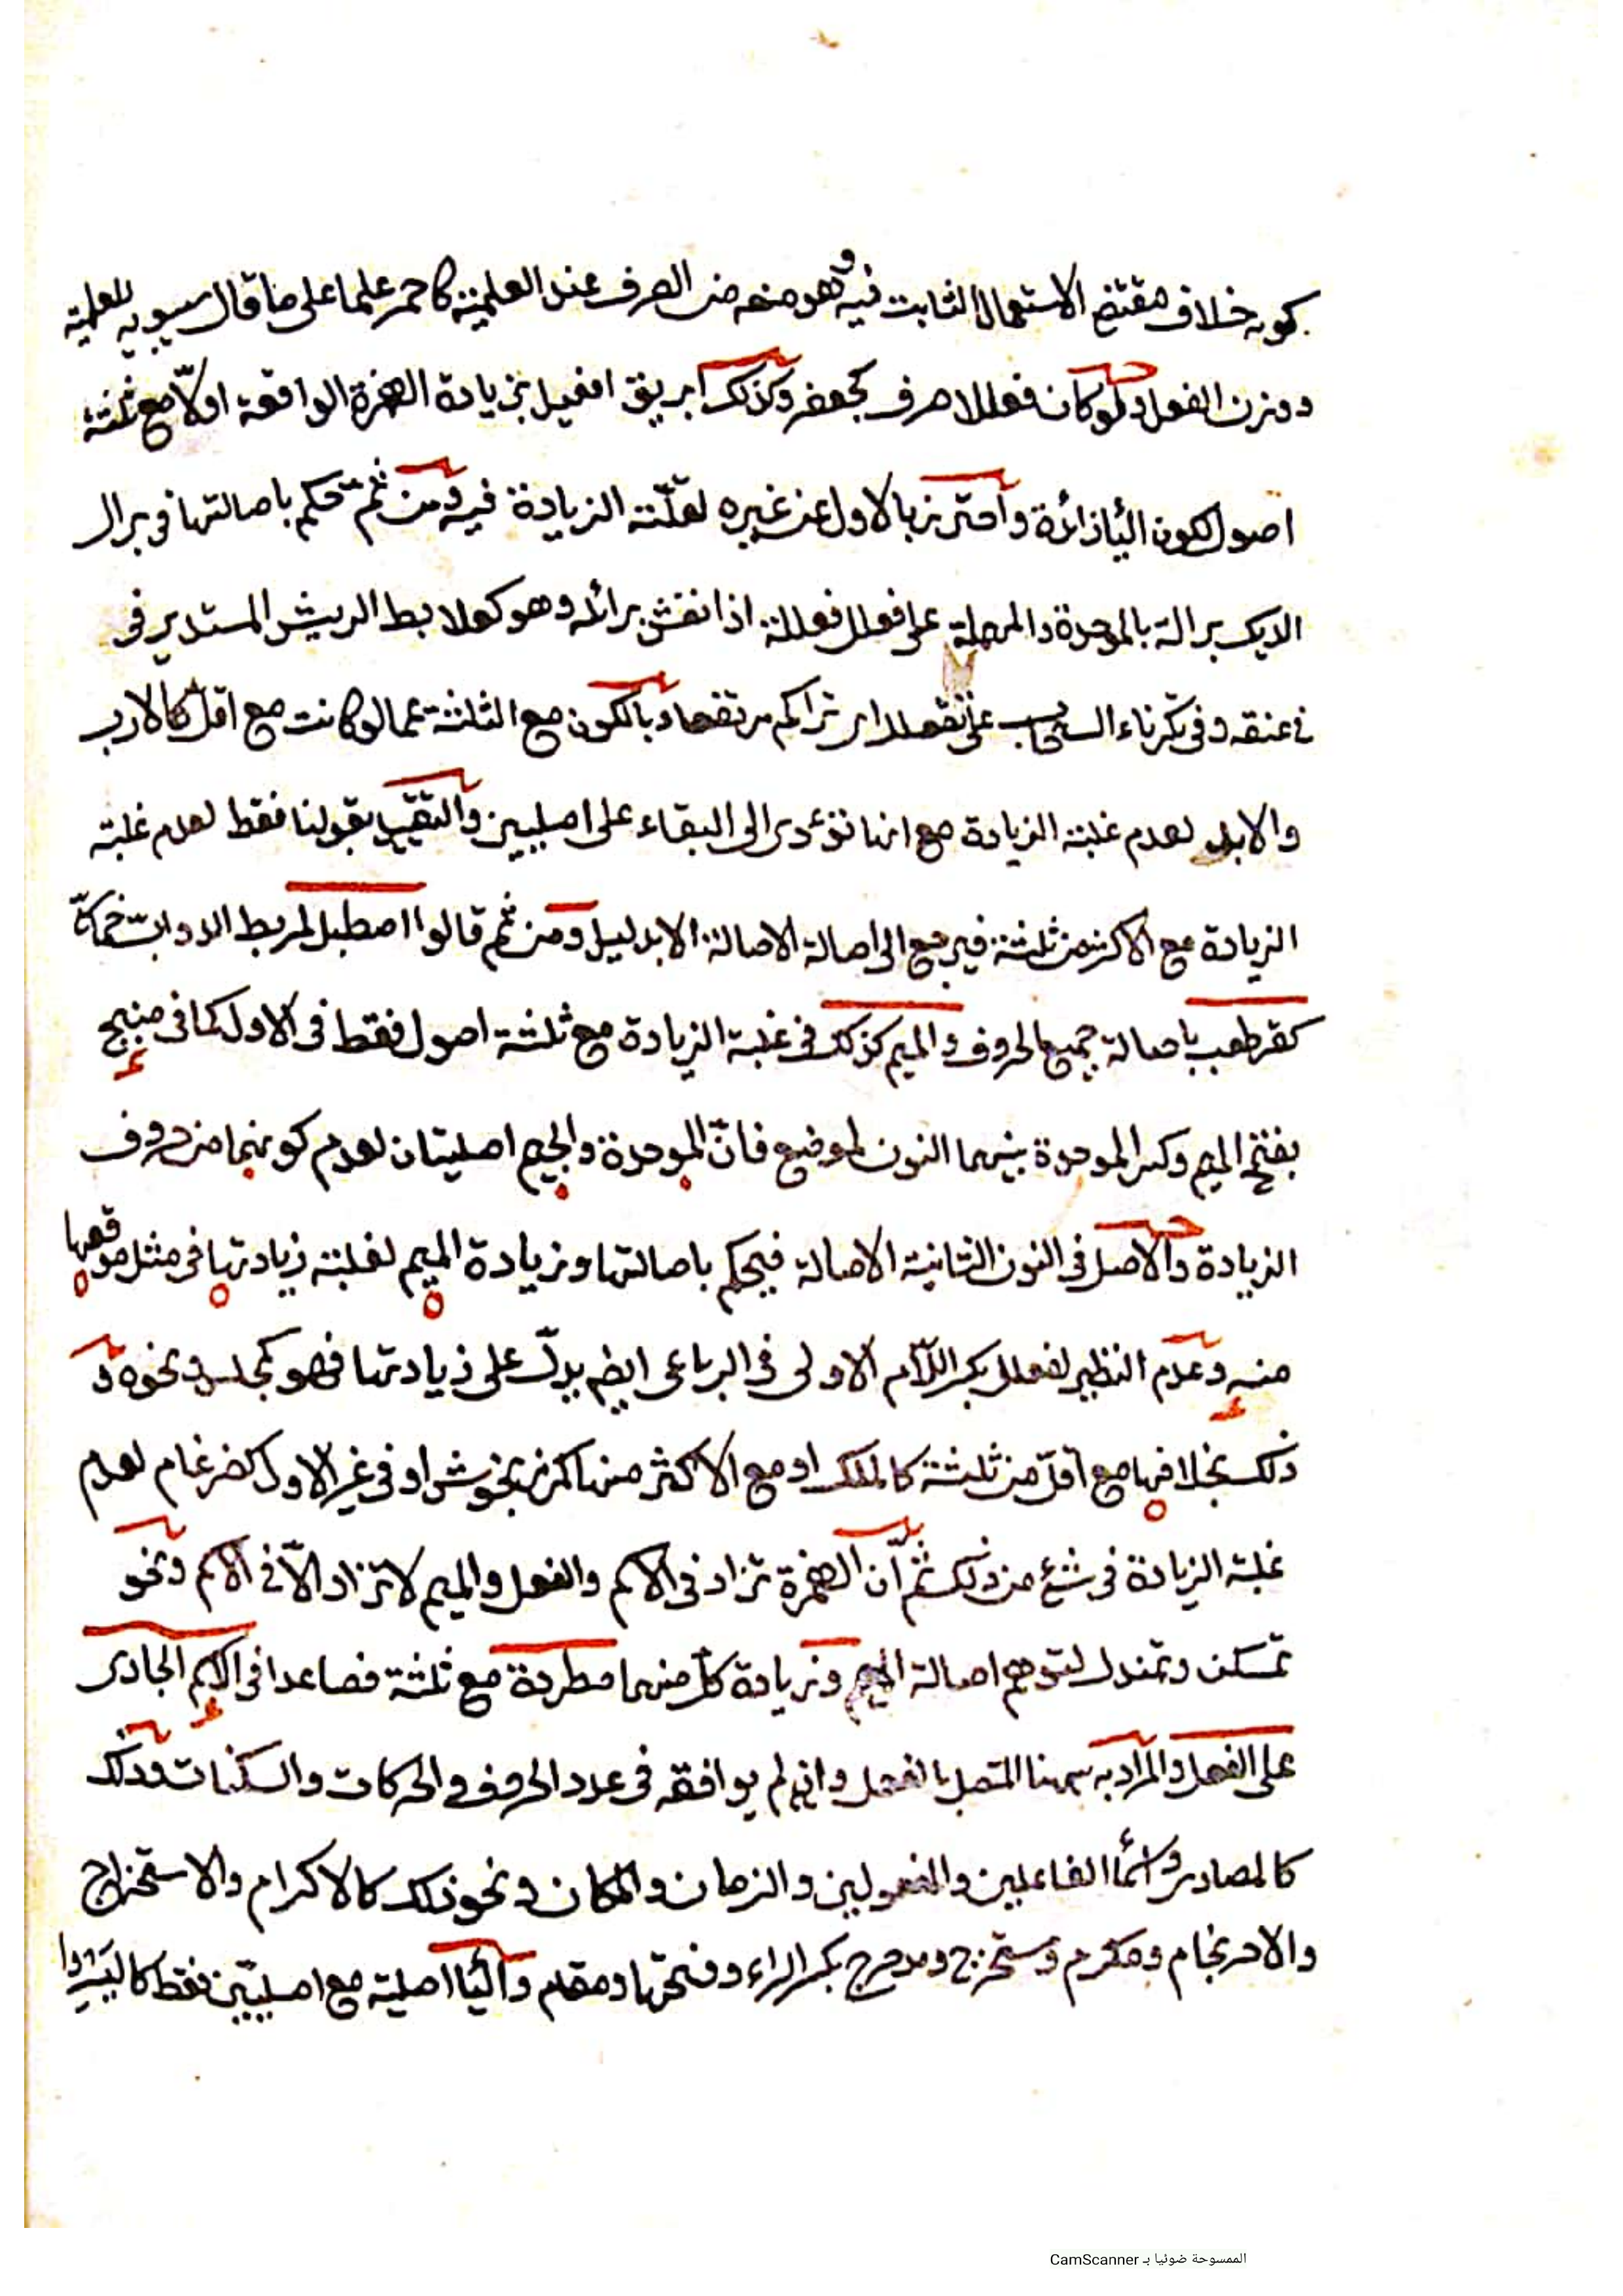 كونه خلاف مقتضى الاستعمال الثابت فيه وهو منعه من الصرف عند العلمية كاحمر علما على ما قال سيبويه للعلمية
ووزن الفعل ولو كان فعللا صرف كجعفر وكذلك ابريق افعيل بزيادة الهمزة الواقعة اولا مع ثلثة
اصول لكون اليا زائدة واحترز بالاول عن غيره لقلة الزيادة فيه ومن ثم حكم باصالتها في برال
الديك برالة بالموحدة والمهملة على فعلل فعللة اذا نفش برائله وهو كعلابط الريش المستدير في
في عنقه وفي تكرناء السحاب على تفعلل اي تراكم مرتفعا وبالكون مع الثلثة عما لو كانت مع اقل كالارب
والابل لعدم غلبة الزيادة مع انها تؤدى الى البقاء على اصليين والتقييد بقولنا فقط لعدم غلبة
الزيادة مع الاكثر من ثلثة فيرجع الى اصالة الاصالة الا بدليل ومن ثم قالوا اصطبل لمربط الدواب
كقرطعب باصالة جميع الحروف والميم كذلك في غلبة الزيادة مع ثلثة اصول فقط في الاول كما في منبج
بفتح الميم وكسر الموحدة بينهما النون لموضع فان الموحدة والجيم اصليتان لعدم كونهما من حروف
الزيادة والاصل في النون الثانية الاصالة فيحكم باصالتها وزيادة الميم لغلبة زيادتها في مثل موقعها
منه وعدم النظير لفعلل بكسر اللام الاولى في الرباعى ايضم يدل على زيادتها فهو كمجلس ونحوه و
ذلك بخلافها مع اقل من ثلثة كالملك او مع الاكثر منها كمرزنجوش او في غير الاول كضرغام لعدم
غلبة الزيادة في شئ من ذلك ثم ان الهمزة تزاد في الاسم والفعل والميم لا تزاد الا في الاسم ونحو
تمسكن وتمندل لتوهم اصالة الميم وزيادة كل منهما مطردة مع ثلثة فصاعدا في الاسم الجارى
على الفعل والمراد به ههنا المتصل بالفعل وان لم يوافقه في عدد الحروف والحركات والسكنات وذلك
كالمصادر واسما الفاعلين والمفعولين والزمان والمكان ونحو ذلك كالاكرام والاستخراج
والاحرنجام ومكرم ومستخرج ومدحرج بكسر الراء وفتحها ومقام واليا اصلية مع اصليين فقط كاليسر
الممسوحة ضوئيا بـ CamScanner